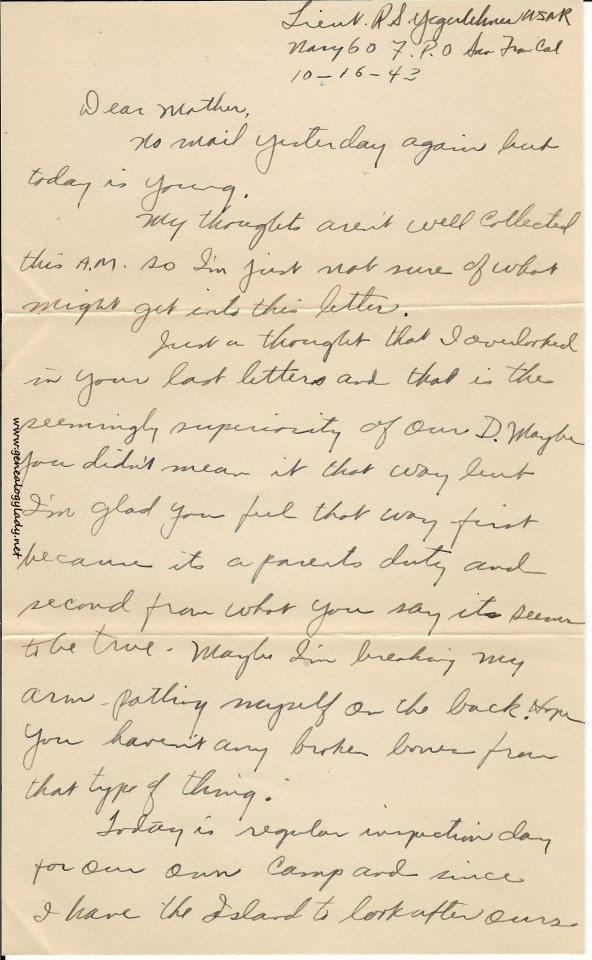 Lieut. R S Yegerlehner USNR
Navy 60 F.P.O San Fran Cal
10-16-43
Dear Mother,
No mail yesterday again but
today is young.
My thoughts aren't well collected
this A.M. so I'm just not sure of what
might get into this letter.
Just a thought that I overlooked
in your last letters and that is the
seemingly superiority of our D. Maybe
you didn't mean it that way but
I'm glad you feel that way first
because its a parents duty and
second from what you say its seems
to be true. Maybe I'm breaking my
arm patting myself on the back. Hope
you haven't any broken bones from
that type of thing.
Today is regular inspection day
for our own Camp and since
I have the Island to look after ours
www.genealogylady.net